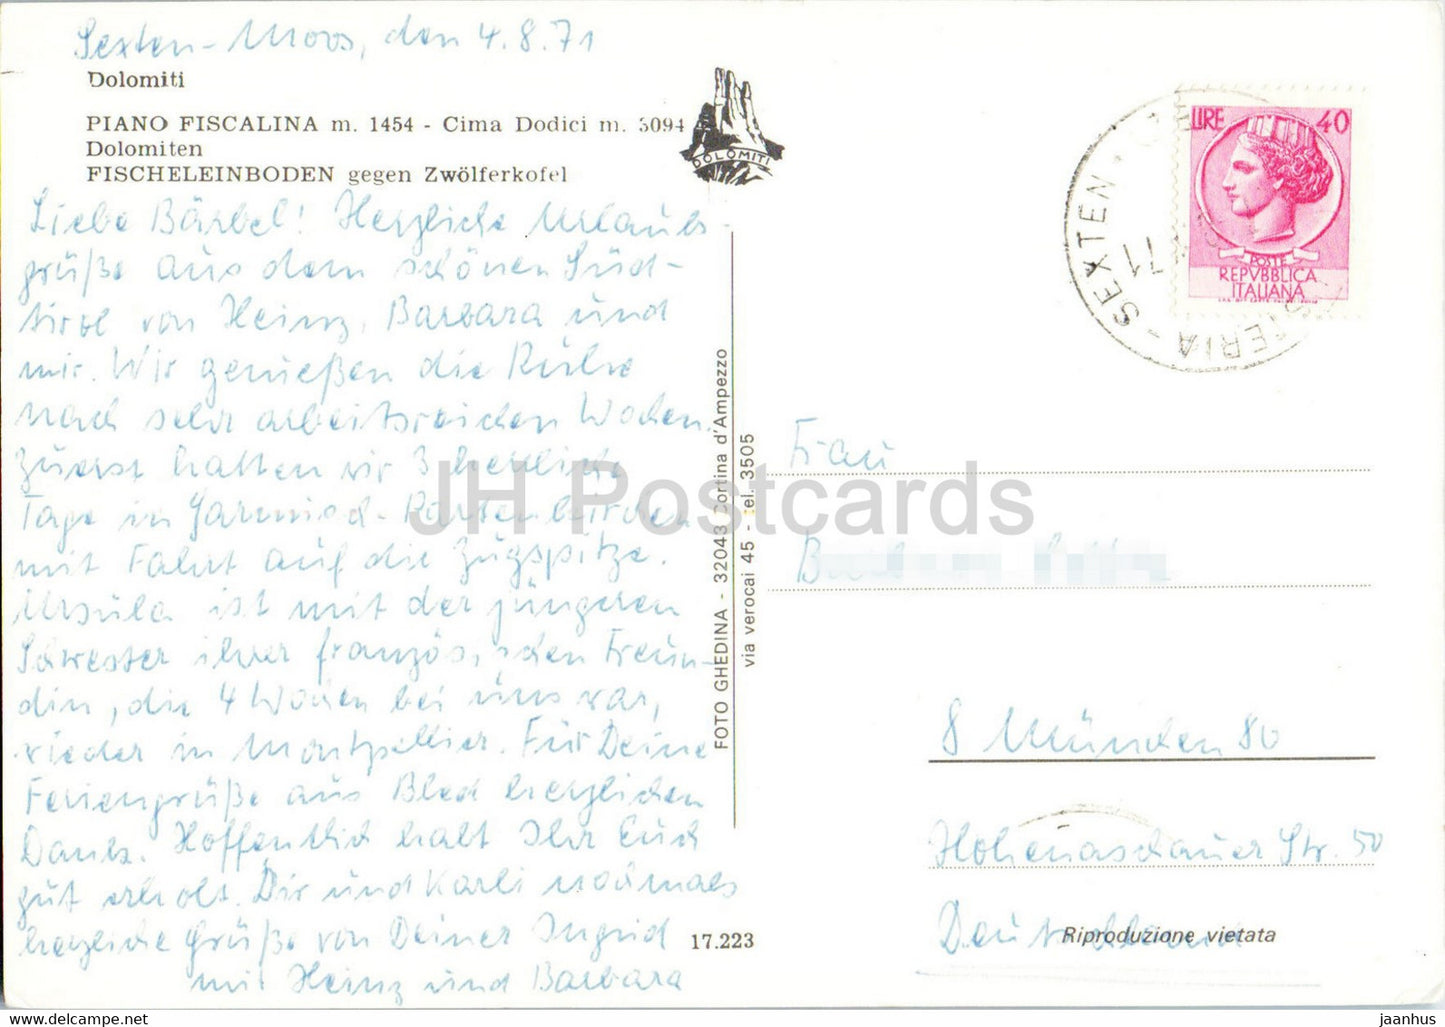 Sexten-Moos, den 4.8.71
Dolomiti
PIANO FISCALINA m. 1454 - Cima Dodici m. 3094
Dolomiten
FISCHELEINBODEN gegen Zwölferkofel
DOLOMITI
Liebe Bärbel! Herzliche Urlaubs-
grüße aus dem schönen Süd-
tirol von Heinz, Barbara und
mir. Wir genießen die Ruhe
nach sehr arbeitsreichen Wochen.
Zuerst hatten wir 3 herrliche
Tage in Garmisch-Partenkirchen
mit Fahrt auf die Zugspitze.
Ursula ist mit der jüngeren
Schwester ihrer französischen Freun-
din, die 4 Wochen bei uns war,
wieder in Montpellier. Für Deine
Feriengrüße aus Bled herzlichen
Dank. Hoffentlich habt Ihr Euch
gut erholt. Dir und Karli nochmals
herzliche Grüße von Deiner Ingrid
mit Heinz und Barbara
17.223
FOTO GHEDINA - 32043 Cortina d'Ampezzo
via verocai 45 - tel. 3505
LIRE 40
POSTE
REPVBBLICA
ITALIANA
SEXTEN
71
Frau
8 München 80
Hohenaschauer Str. 50
Deutschland
Riproduzione vietata
JH Postcards
www.jaanhus.com
jaanhus